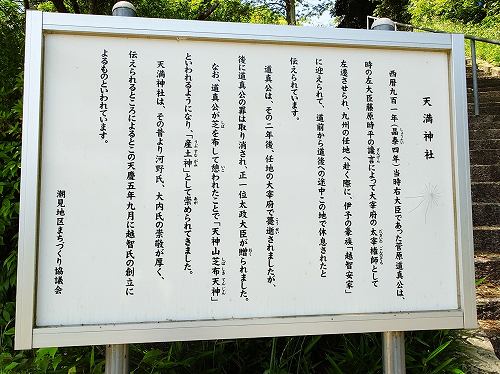 天満神社
西暦九百一年（昌泰四年）当時右大臣であった菅原道真公は、
時の左大臣藤原時平の讒言によって大宰府の太宰権師として
左遷させられ、九州の任地へ赴く際に、伊予の豪族「越智安家」
に迎えられて、道前から道後への途中この地で休息されたと
伝えられています。
道真公は、その二年後、任地の大宰府で薨逝されましたが、
後に道真公の罪は取り消され、正一位太政大臣が贈られました。
なお、道真公が芝を布して憩われたことで「天神山芝布天神」
といわれるようになり、「産土神」として崇められてきました。
天満神社は、その昔より河野氏、大内氏の崇敬が厚く、
伝えられるところによるとこの天慶五年九月に越智氏の創立に
よるものといわれています。
潮見地区まちづくり協議会